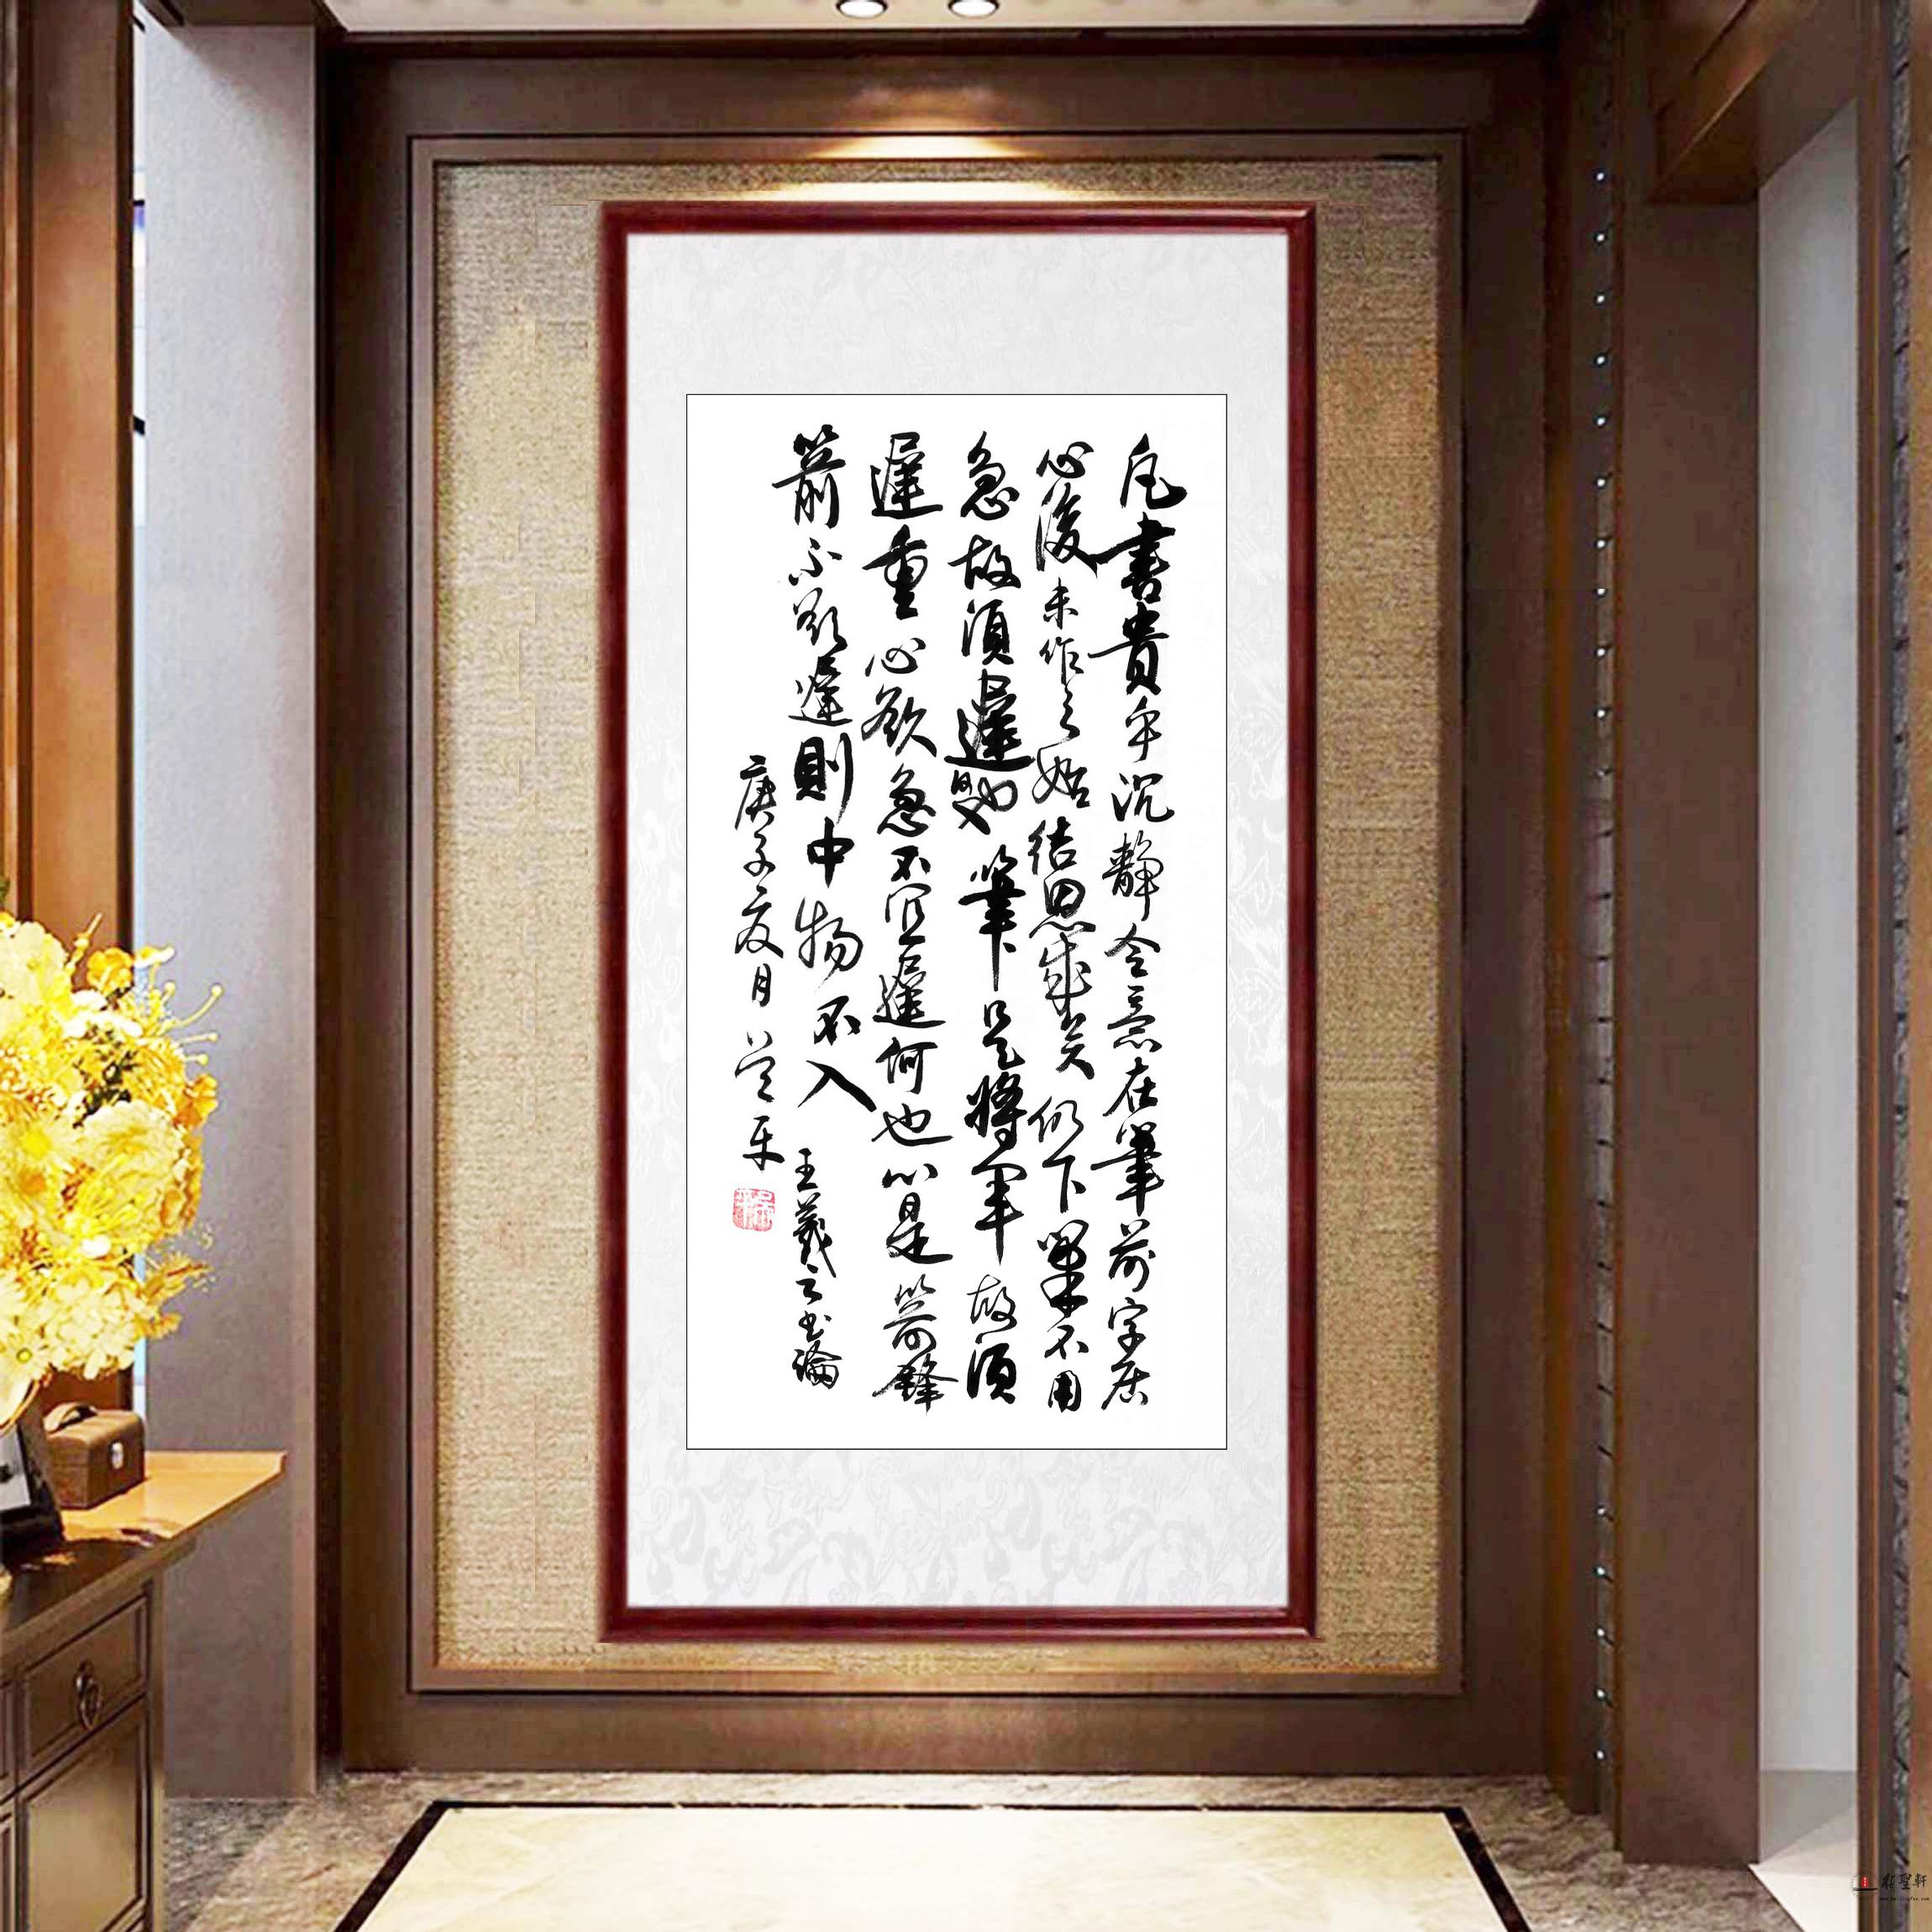 凡書貴乎沉靜令意在筆前字居
心後未作之始結思成矣仍下筆不用
急故須遲也筆是將軍故須
遲重心欲急不宜遲何也心是箭鋒
箭不欲遲則中物不入 王羲之書論
庚子夏月